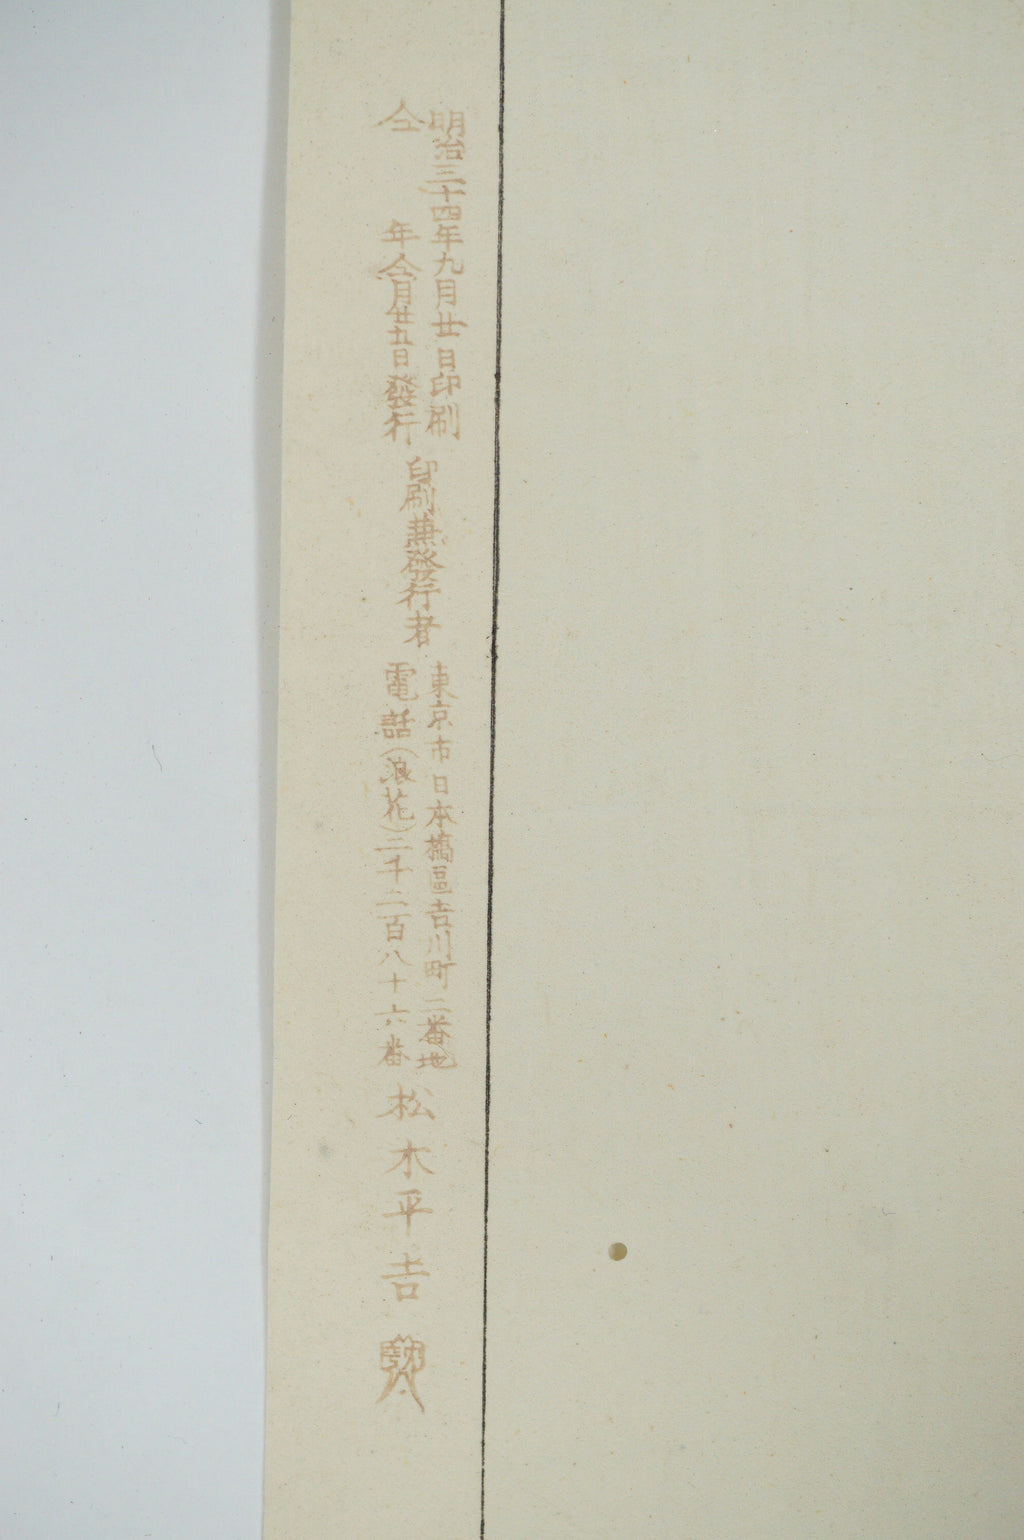 明治三十四年九月廿日印刷
仝年仝月廿五日發行
印刷兼發行者
東京市日本橋區吉川町二番地
電話(浪花)二千二百八十六番
松木平吉